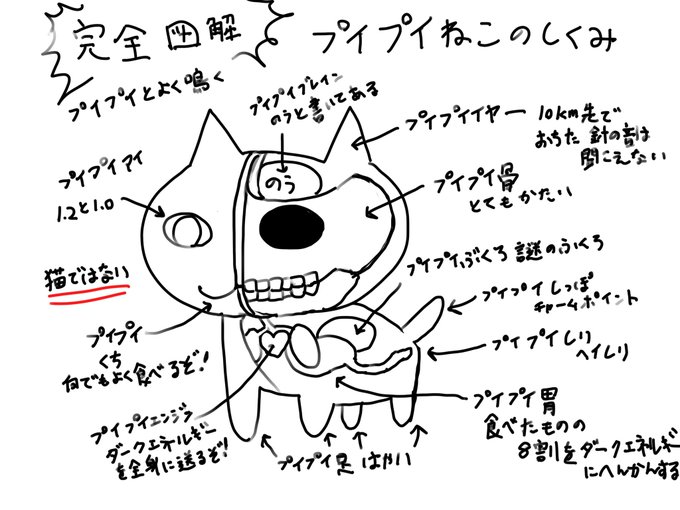 完全図解
プイプイねこのしくみ
プイプイとよく鳴く
プイプイブレイン
のうと書いてある
プイプイイヤー
10km先で
おちた針の音は
聞こえない
プイプイアイ
1.2と1.0
のう
プイプイ骨
とてもかたい
猫ではない
プイプイぶくろ 謎のふくろ
プイプイしっぽ
チャームポイント
プイプイ
くち
何でもよく食べるぞ!
プイプイしり
ヘイしり
プイプイエンジン
ダークエネルギー
を全身に送るぞ!
プイプイ足 はやい
プイプイ胃
食べたものの
8割をダークエネルギー
にへんかんする